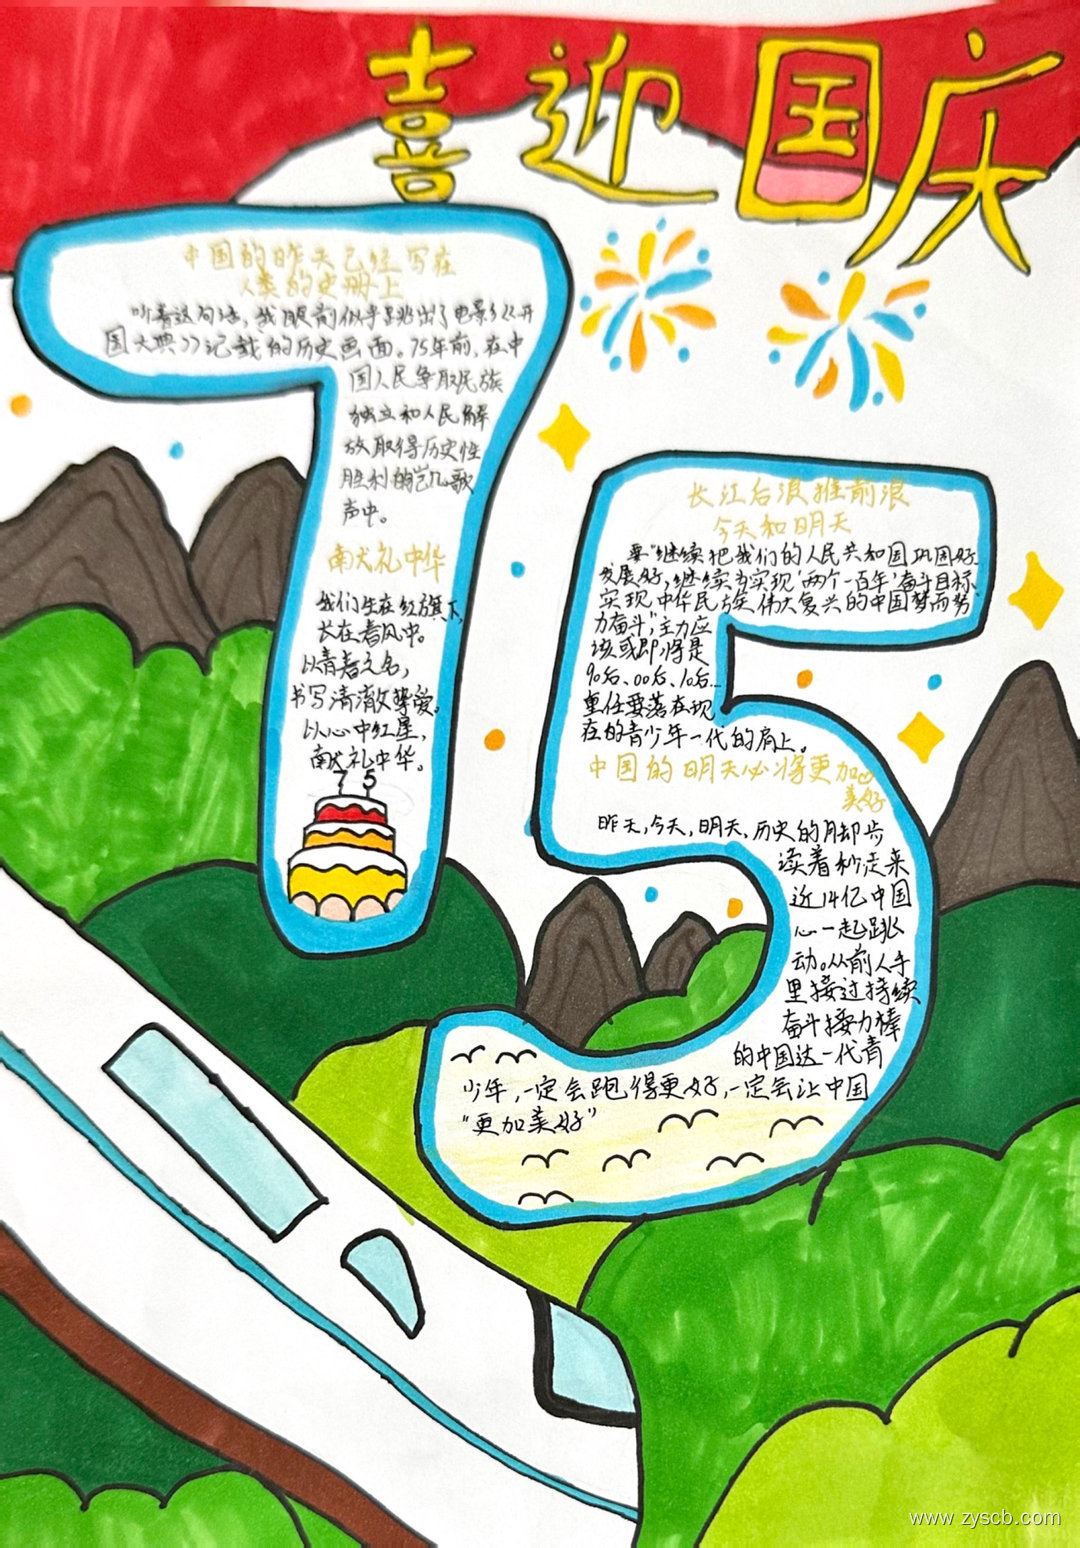 喜迎国庆
中国的昨天已经写在
人类的史册上
听着这句话,我眼前似乎跳出了电影《开
国大典》记载的历史画面。75年前,在中
国人民争取民族
独立和人民解
放取得历史性
胜利的凯歌
声中。
献礼中华
我们生在红旗下,
长在春风中。
以青春之名,
书写清澈挚爱。
以心中红星,
献礼中华。
75
长江后浪推前浪
今天和明天
要"继续把我们的人民共和国巩固好
发展好,继续为实现'两个一百年'奋斗目标
实现中华民族伟大复兴的中国梦而努
力奋斗",主力应
该或即将是
90后、00后、10后...
重任要落在现
在的青少年一代的肩上。
中国的明天必将更加
美好
昨天,今天,明天,历史的脚步
读着秒走来
近14亿中国
心一起跳
动。从前人手
里接过持续
奋斗接力棒
的中国这一代青
少年,一定会跑得更好,一定会让中国
"更加美好"
www.zyscb.com